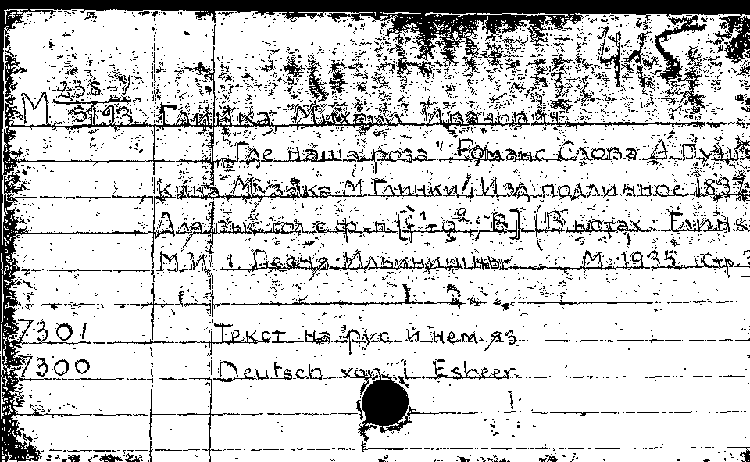 415
М 235
3193 Глинка, Михаил Иванович
„Где наша роза" Романс Слова А. Пуш
кина Музыка М. Глинки, Изд. подлинное 1837
Для выс. гол. с ф-п (В нотах: Глинк
М.И. Песня Ильинишны М. 1935 Стр. 3
7301 Текст на рус и нем. яз
7300 Deutsch von Esbeer